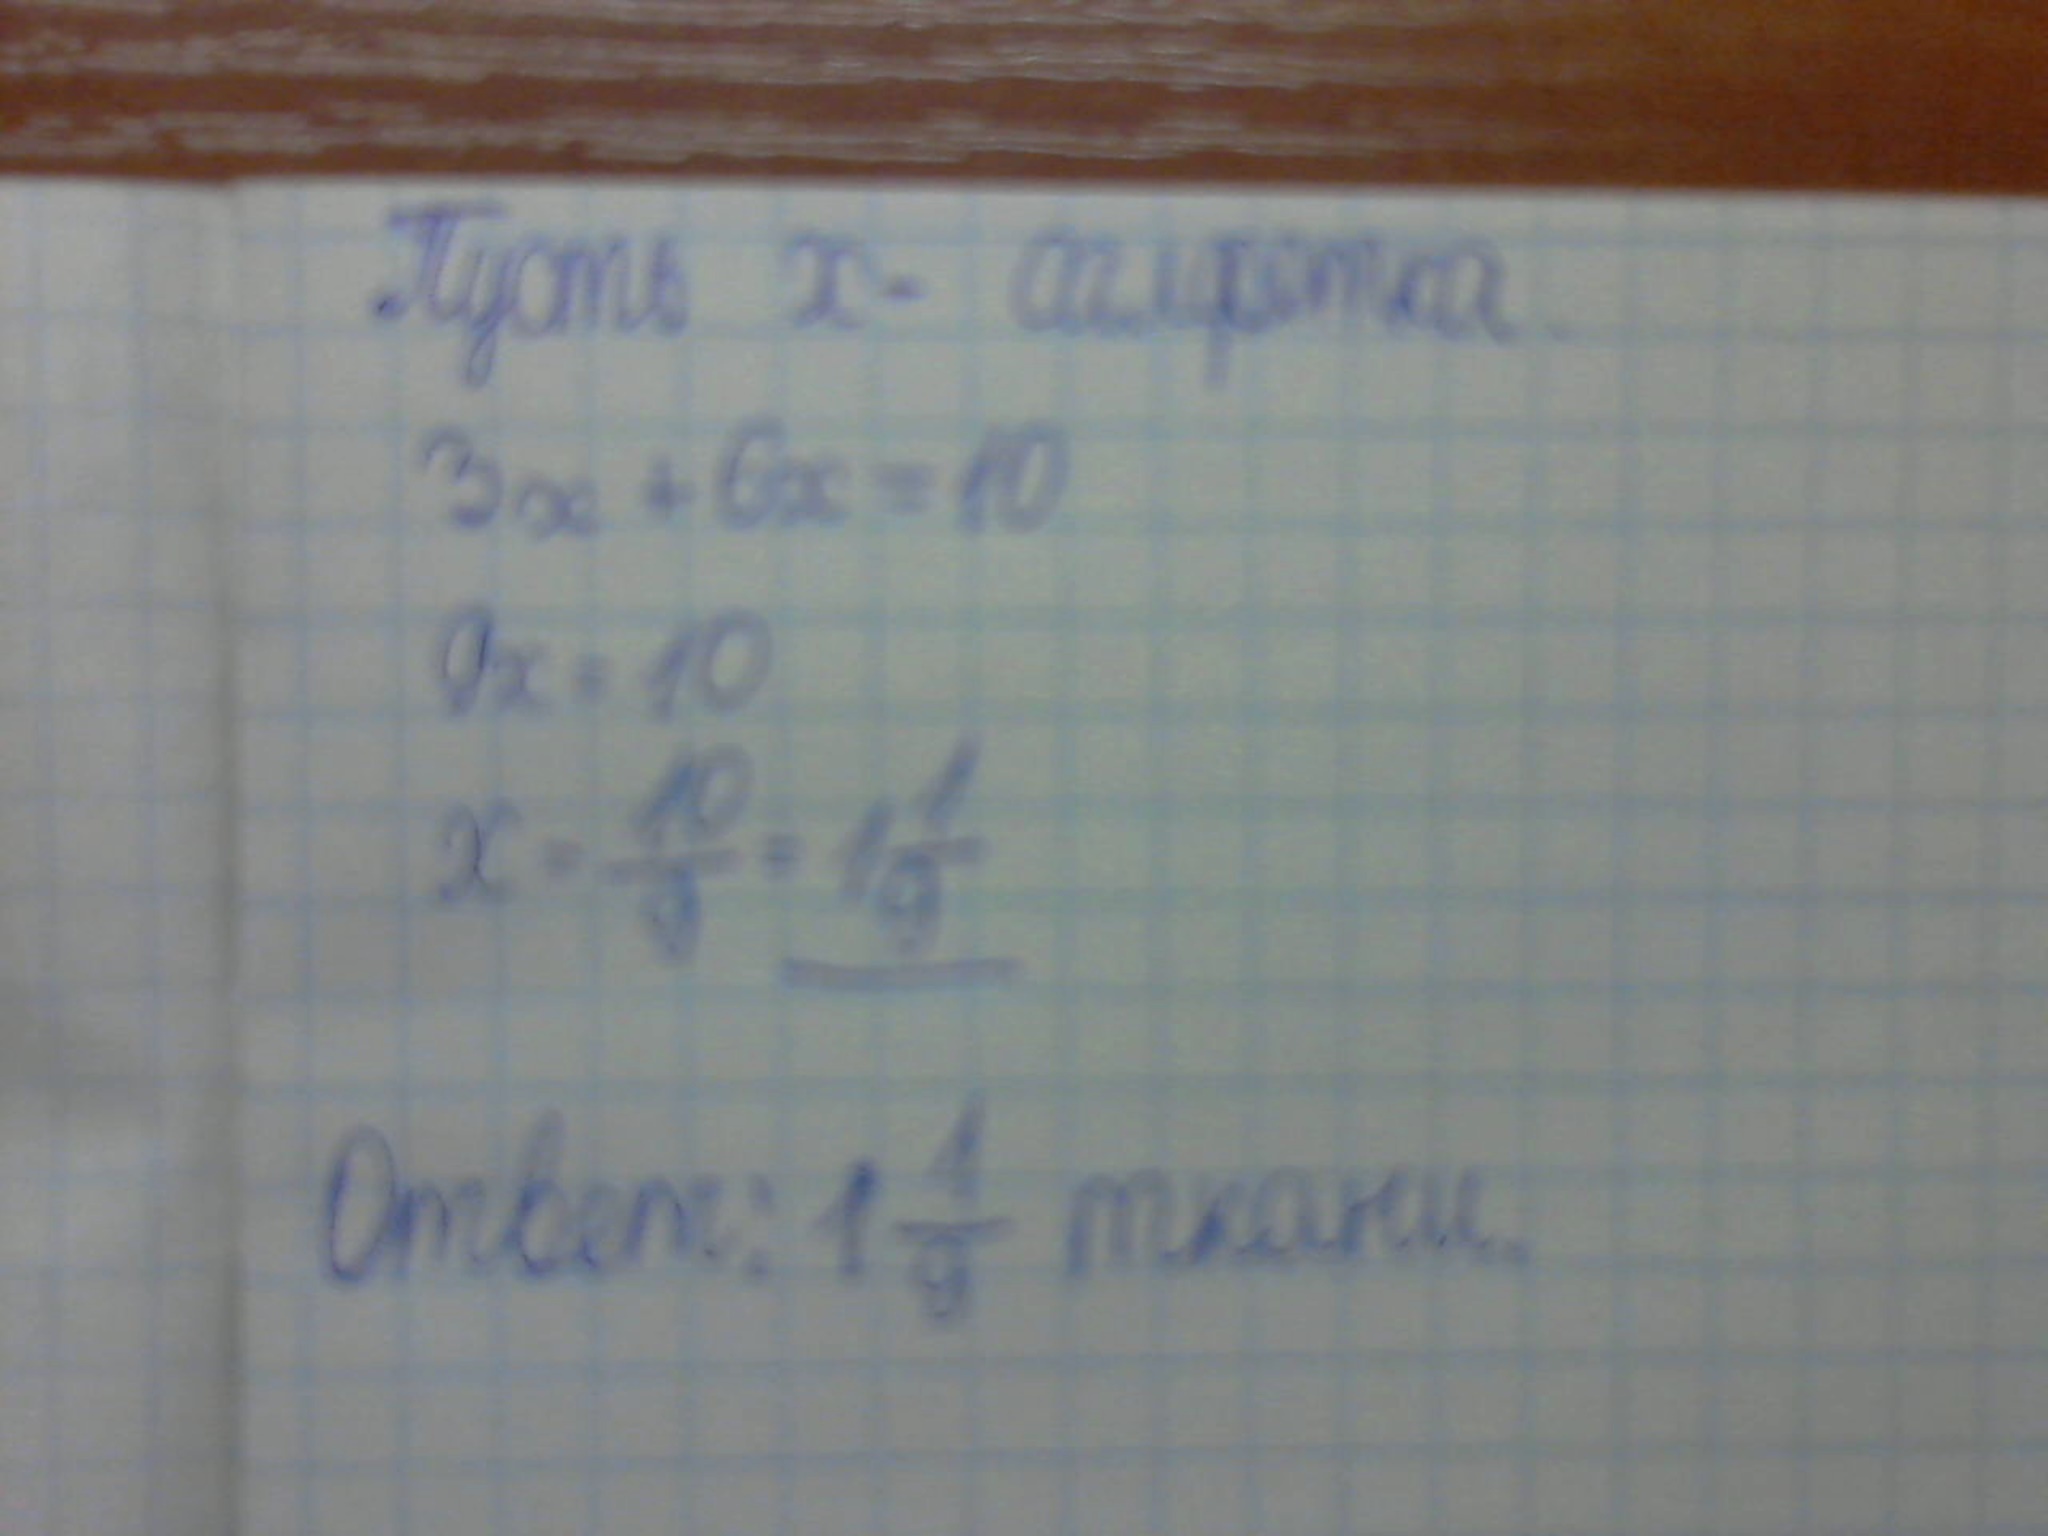 Пусть x - салфетка.
3x + 6x = 10
9x = 10
x = 10/9 = 1 1/9
Ответ: 1 1/9 ткани.